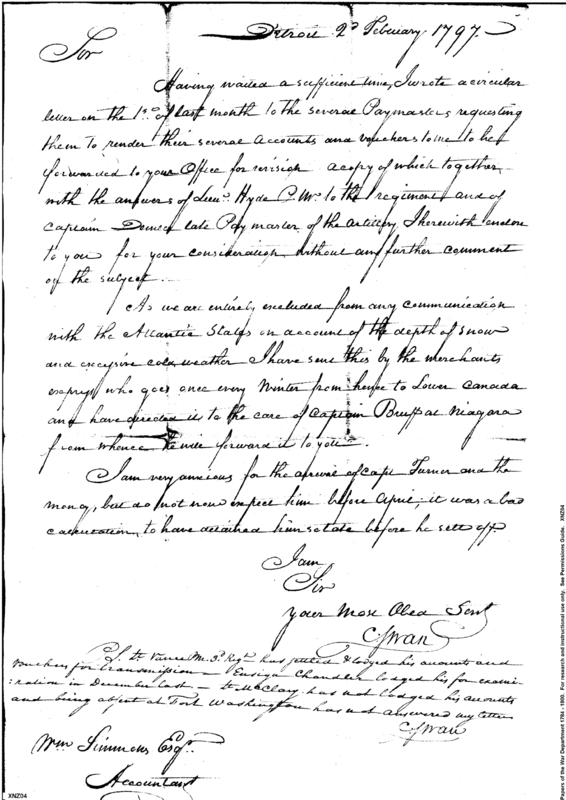 Detroit 2d February 1797.
Sir
Having waited a sufficient time, I wrote a circular
letter on the 1st of last month to the several Paymasters requesting
them to render their several accounts and vouchers to me to be
forwarded to your Office for revision a copy of which together
with the answers of Lieut. Hyde P. Mr. to the regiment and of
Captain late Paymaster of the Artillery I herewith enclose
to you for your consideration, without any further comment
on the subject.
As we are entirely excluded from any communication
with the Atlantic States on account of the depth of snow
and excessive cold weather I have sent this by the merchants
express who goes once every Winter from hence to Lower Canada
and have directed it to the care of Captain Bruff at Niagara
from whence he will forward it to you.
I am very anxious for the arrival of Capt. Turner and the
money, but do not now expect him before April; it was a bad
calculation, to have detained him so late before he sett off.
I am
Sir
your Most Obed Servt
C Swan
P.S. Lt. Vance P.M. 3d. Regt. has settled & lodged his accounts and
vouchers for transmission – Ensign Chandler lodged his for exami
:nation in December last – Lt. McClary has not lodged his accounts
and being absent at Fort Washington has not answered my letter
C Swan
Wm. Simmons Esqr.
Accountant
XNZ04
Papers of the War Department 1784 - 1800. For research and instructional use only. See Permissions Guide. XNZ04